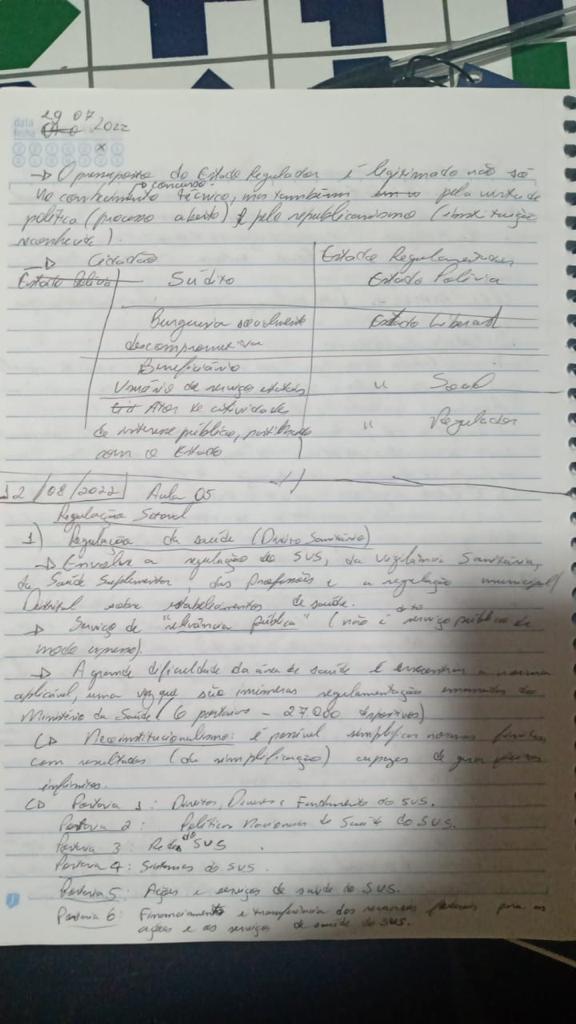 29 07
2022
data
fecha
→ O pressuposto do Estado Regulador é legitimado não só
no conhecimento técnico, mas também pela
o concurso
política (processo aberto) e pelo republicanismo
reconhecida).
→ Cidadão Estado Regulamentador
Estado Polícia Súdito Estado Polícia
Burguesia socialmente Estado Liberal
descompromissada
Beneficiário
Usuário de serviços estatais " Social
Ator de atividade
de interesse público, partilhando " Regulador
com o Estado
12/08/2022 Aula 05
Regulação Setorial
1) Regulação da saúde (Direito Sanitário)
→ Envolve a regulação do SUS, da Vigilância Sanitária,
da Saúde Suplementar das Profissões e a regulação municipal/
Distrital sobre estabelecimentos de saúde.
→ Serviço de "relevância pública" (não é dito serviço público de
modo expresso).
→ A grande dificuldade da área de saúde é encontrar a norma
aplicável, uma vez que são inúmeras regulamentações emanadas do
Ministério da Saúde (6 portarias - 27000 dispositivos)
↳ Neoinstitucionalismo: é possível simplificar normas
com resultados (da simplificação) capazes de gerar
infinitos.
↳ Portaria 1: Direitos, Deveres e Fundamento do SUS.
Portaria 2: Políticas Nacionais de Saúde do SUS.
Portaria 3: Redes do SUS.
Portaria 4: Sistemas do SUS.
Portaria 5: Ações e serviços de saúde do SUS.
Portaria 6: Financiamento e transferência dos recursos federais para as
ações e os serviços de saúde do SUS.